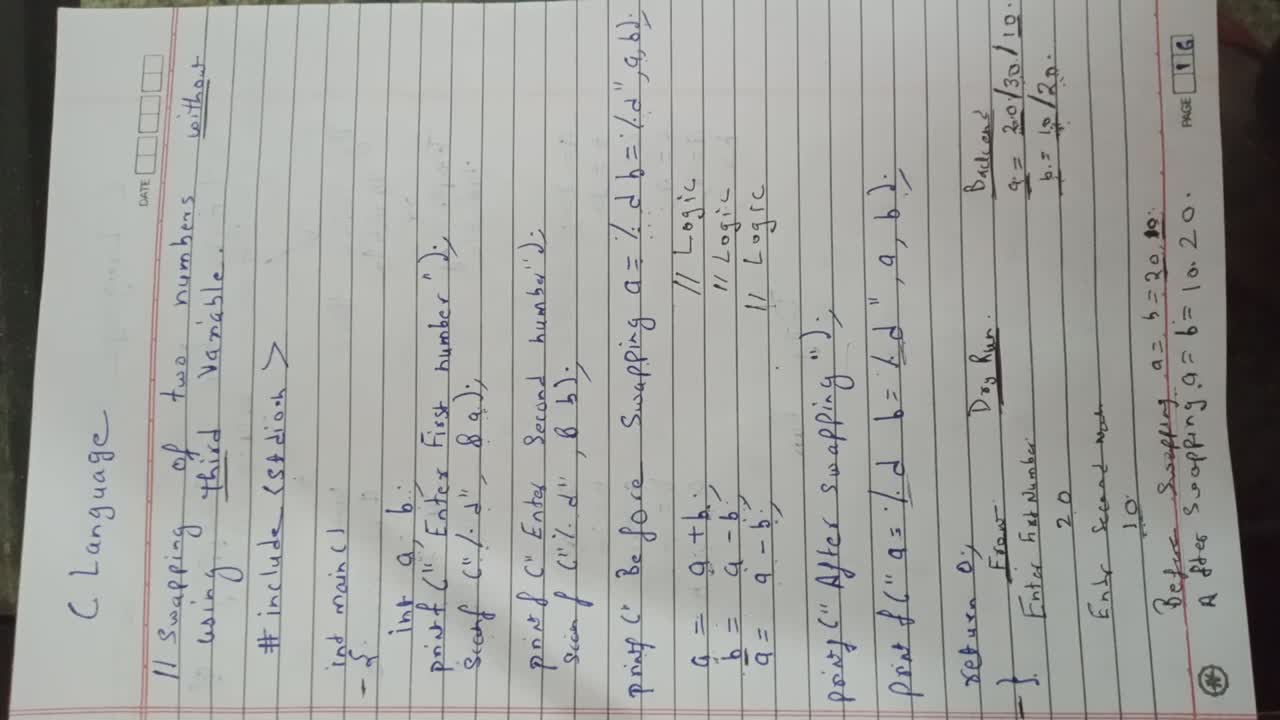 C Language
DATE
// Swapping of two numbers without
using third variable.
# include <stdio.h>
int main()
{
int a, b;
printf(" Enter First number");
scanf ("%d", &a);
printf (" Enter Second number");
scanf ("%d", &b);
printf (" Before Swapping a = %d b = %d", a, b);
a = a + b; // Logic
b = a - b; // Logic
a = a - b; // Logic
printf(" After swapping");
printf(" a = %d b = %d", a, b);
return 0;
}
Dry Run.
Backend
Enter First Number
a = 20/30/10.
20
b = 10/20.
Enter Second
10
Before Swapping a = b = 20, 10.
After Swapping a = b = 10. 20.
PAGE 16